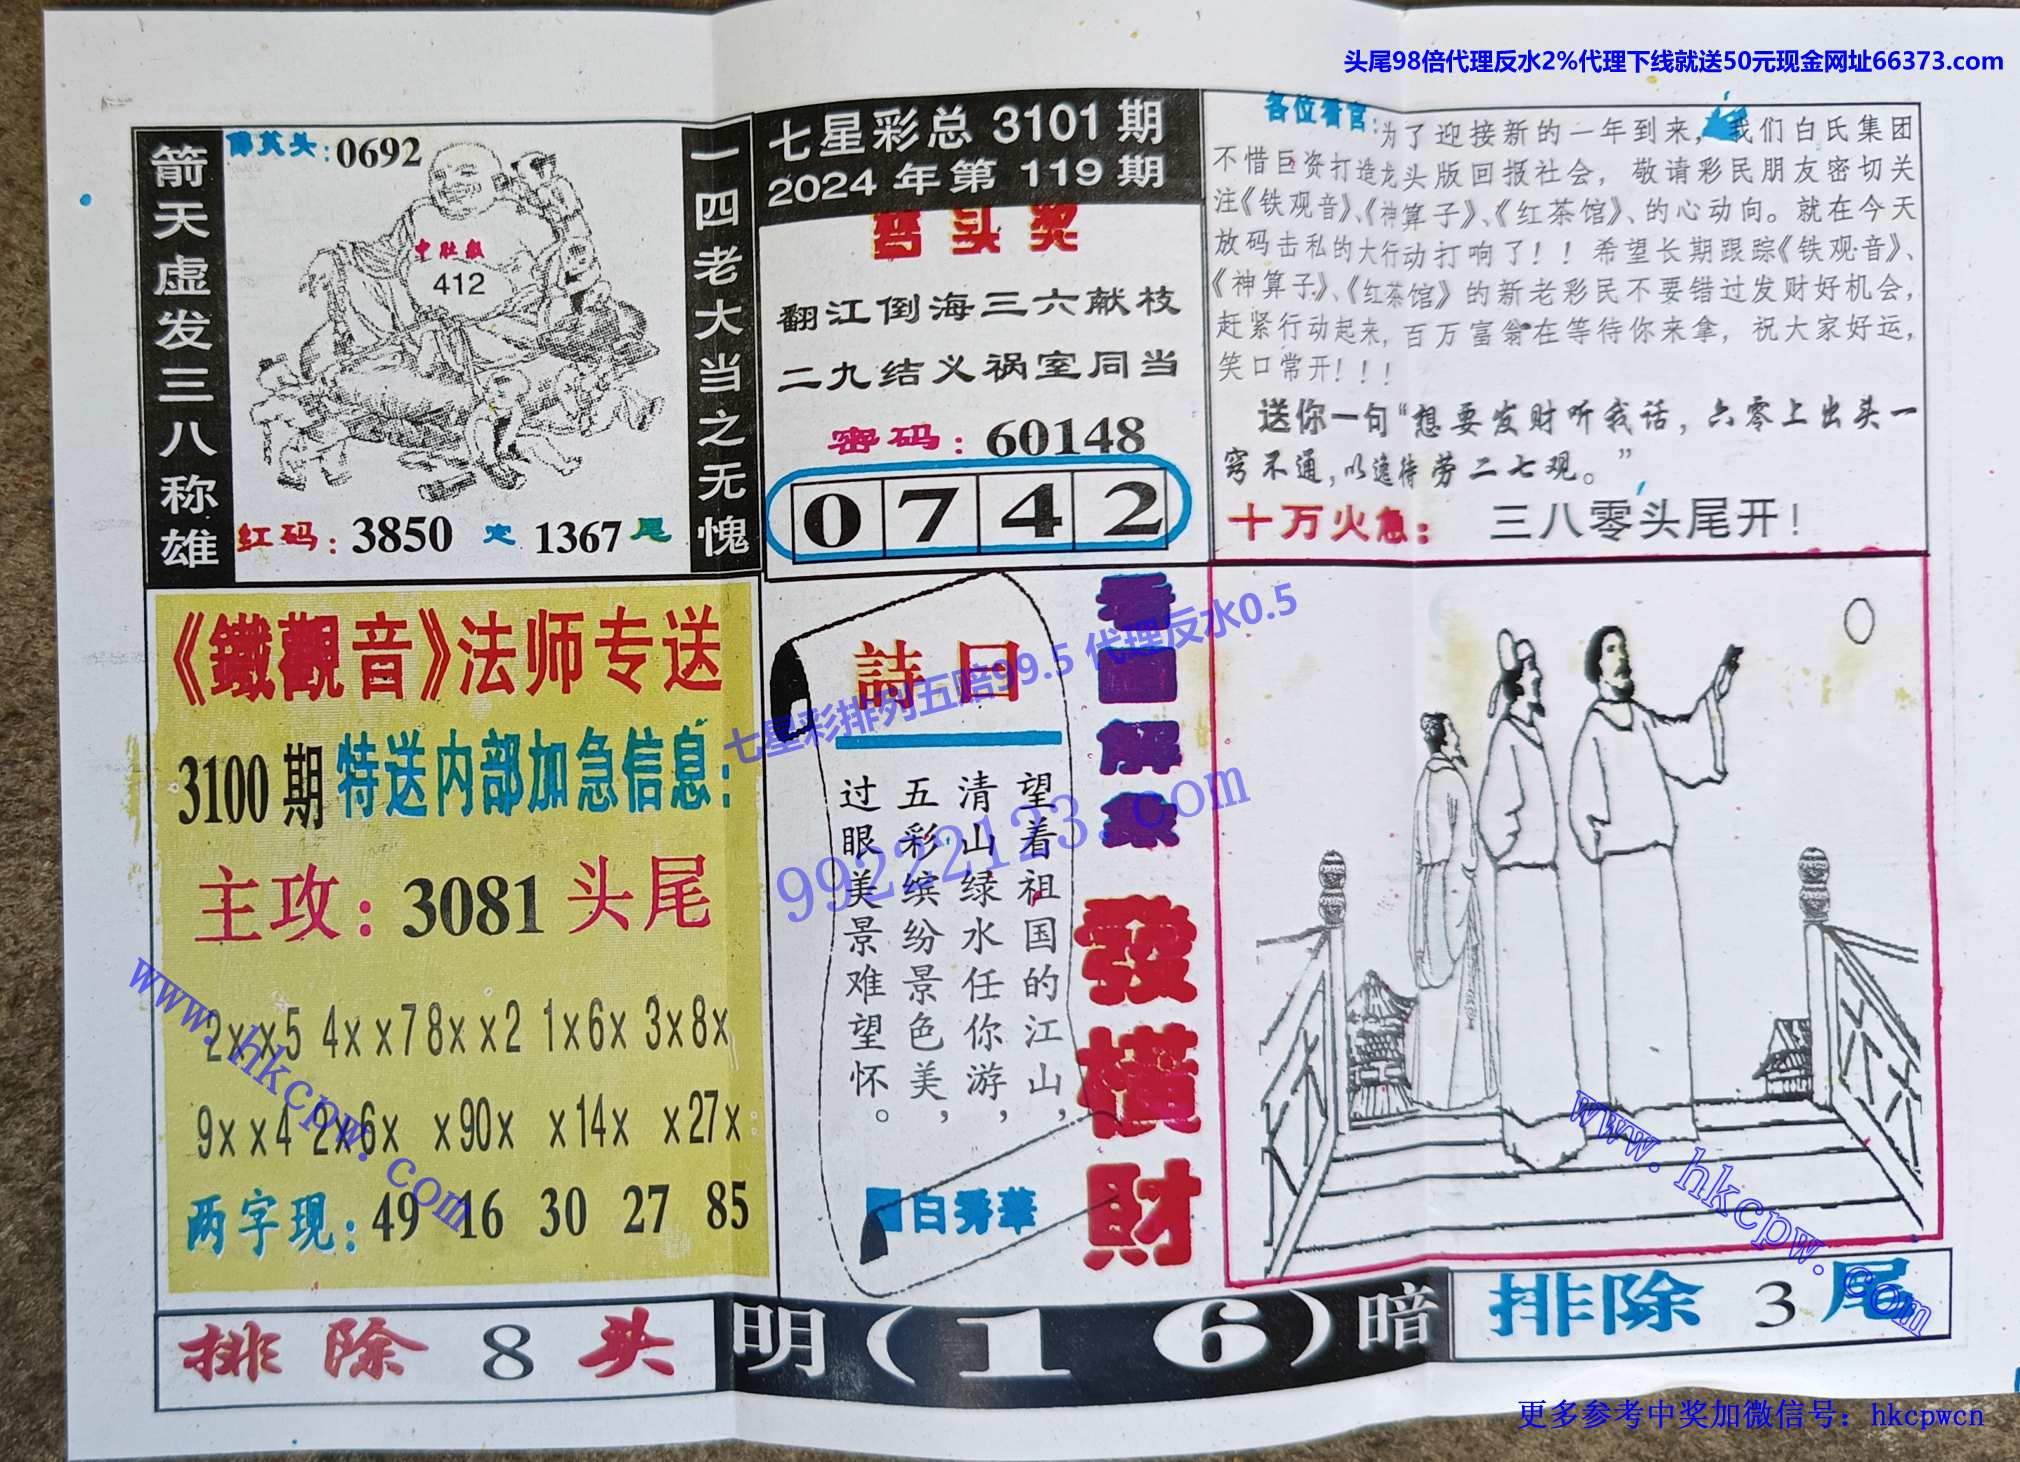 头尾98倍代理反水2%代理下线就送50元现金网址66373.com
箭天虚发三八称雄
头:0692
中肚报
412
红码:3850 定 1367 尾
一四老大当之无愧
七星彩总 3101 期
2024 年第 119 期
头奖
翻江倒海三六献枝
二九结义祸室同当
密码:60148
0 7 4 2
各位看官:为了迎接新的一年到来,我们白氏集团
不惜巨资打造龙头版回报社会,敬请彩民朋友密切关
注《铁观音》、《神算子》、《红茶馆》、的心动向。就在今天
放码击私的大行动打响了!!希望长期跟踪《铁观音》、
《神算子》、《红茶馆》的新老彩民不要错过发财好机会,
赶紧行动起来,百万富翁在等待你来拿,祝大家好运,
笑口常开!!!
送你一句“想要发财听我话,六零上出头一
窍不通,以逸待劳二七观。”
十万火急:三八零头尾开!
《鐵觀音》法师专送
3100期特送内部加急信息:
主攻:3081头尾
2××5 4××7 8××2 1×6× 3×8×
9××4 2×6× ×90× ×14× ×27×
两字现:49 16 30 27 85
詩曰
望着祖国的江山,
清山绿水任你游,
五彩缤纷景色美,
过眼美景难望怀。
白秀華
看图解象
發橫財
七星彩排列五赔99.5 代理反水0.5
99222123.com
www.hkcpw.com
www.hkcpw.com
排除 8 头
明(1 6)暗
排除 3 尾
更多参考中奖加微信号:hkcpwcn